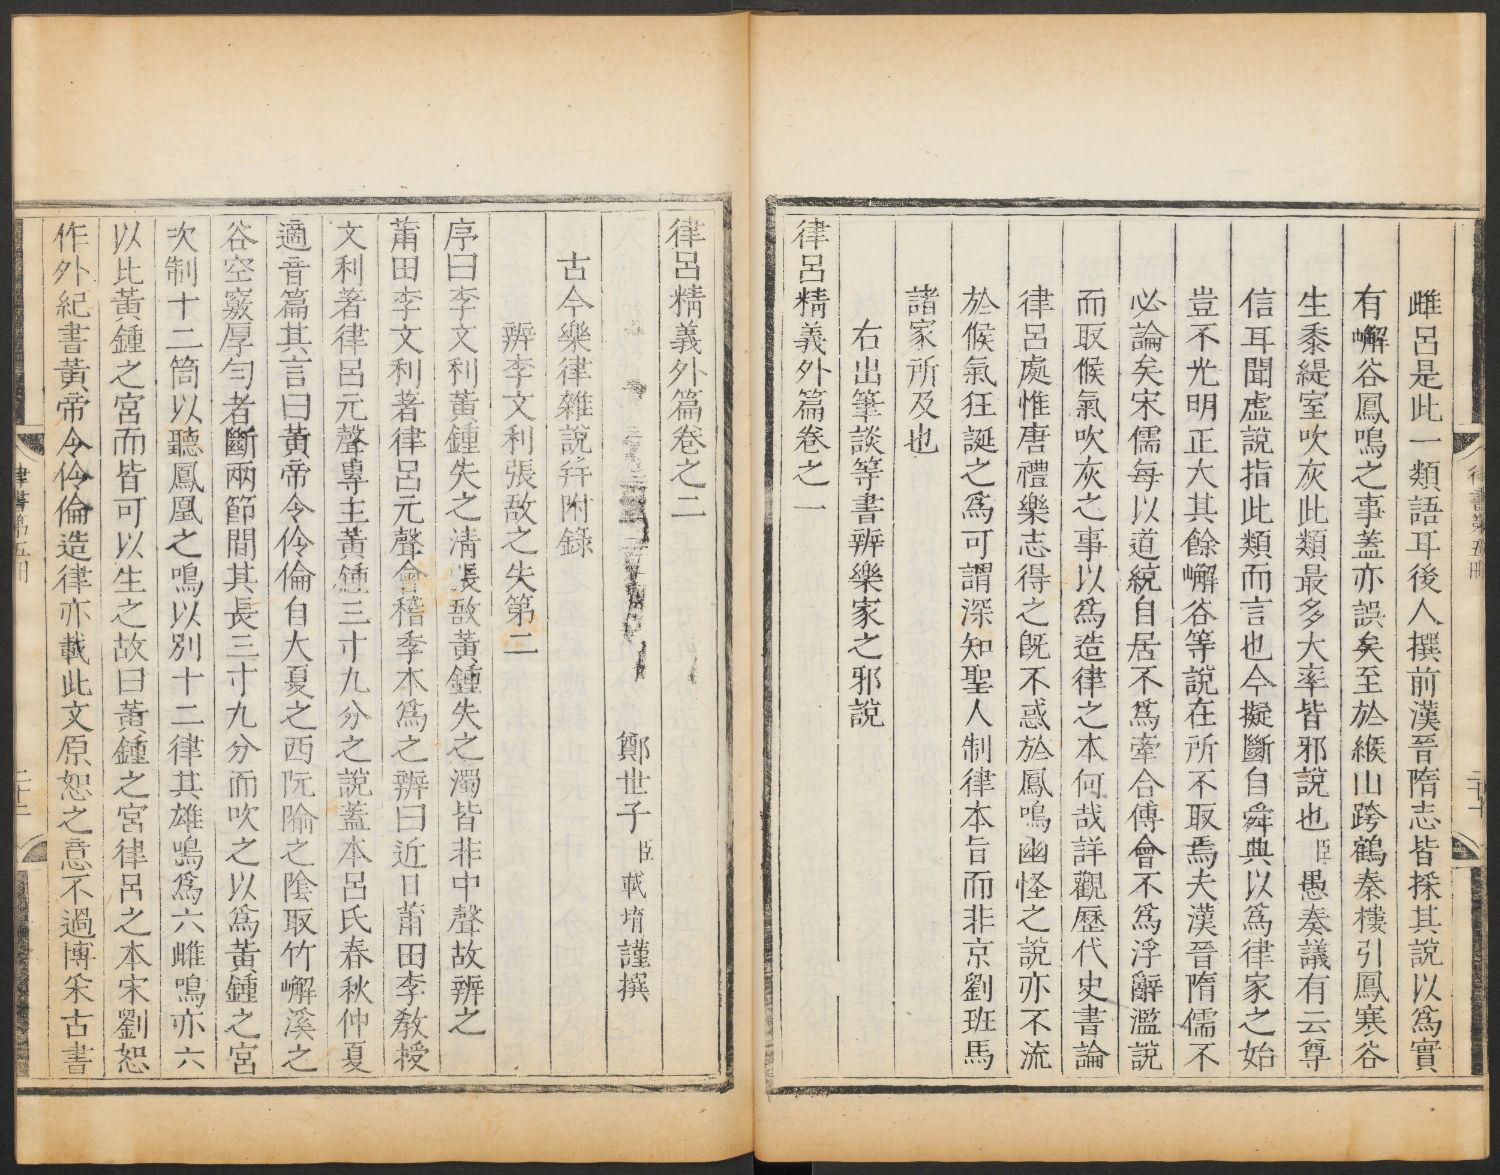 雌呂是此一類語耳後人撰前漢晉隋志皆採其說以爲實
有嶰谷鳳鳴之事蓋亦誤矣至於緱山跨鶴秦樓引鳳寒谷
生黍緹室吹灰此類最多大率皆邪說也臣愚奏議有云尊
信耳聞虛說指此類而言也今擬斷自舜典以爲律家之始
豈不光明正大其餘嶰谷等說在所不取焉夫漢晉隋儒不
必論矣宋儒每以道統自居不爲牽合傅會不爲浮辭濫說
而取候氣吹灰之事以爲造律之本何哉詳觀歷代史書論
律呂處惟唐禮樂志得之旣不惑於鳳鳴幽怪之說亦不流
於候氣狂誕之爲可謂深知聖人制律本旨而非京劉班馬
諸家所及也
右出筆談等書辨樂家之邪說
律呂精義外篇卷之一
律書第五冊
二十一
律呂精義外篇卷之二
鄭世子臣載堉謹撰
古今樂律雜說幷附錄
辨李文利張敔之失第二
序曰李文利黃鍾失之清張敔黃鍾失之濁皆非中聲故辨之
莆田李文利著律呂元聲會稽季本爲之辨曰近日莆田李敎授
文利著律呂元聲專主黃鍾三寸九分之說蓋本呂氏春秋仲夏
適音篇其言曰黃帝令伶倫自大夏之西阮隃之陰取竹嶰溪之
谷空竅厚勻者斷兩節間其長三寸九分而吹之以爲黃鍾之宮
次制十二筒以聽鳳凰之鳴以別十二律其雄鳴爲六雌鳴亦六
以比黃鍾之宮而皆可以生之故曰黃鍾之宮律呂之本宋劉恕
作外紀書黃帝令伶倫造律亦載此文原恕之意不過博采古書
律書第五冊